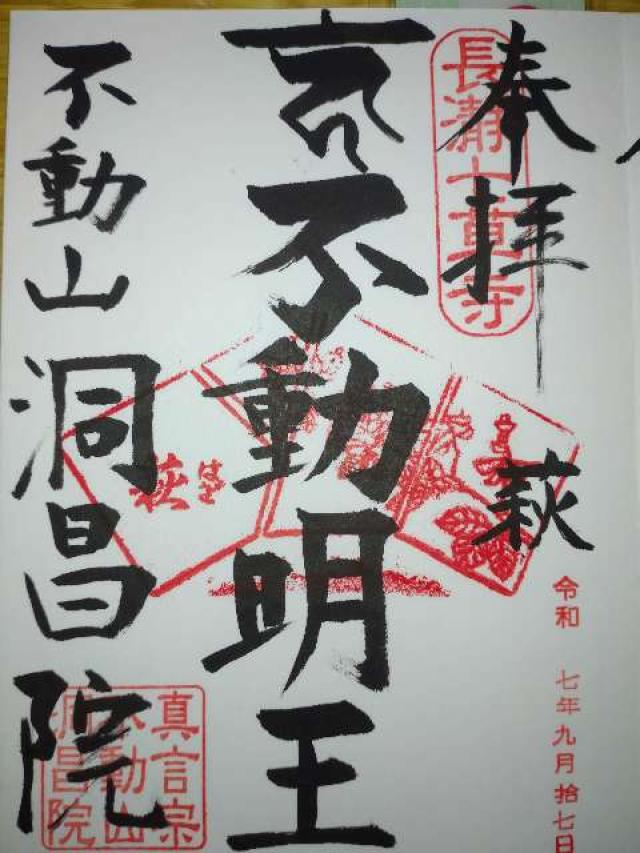 奉拝
長瀞七草寺
萩
令和 七年九月拾七日
不動明王
萩
不動山洞昌院
真言宗
不動山
洞昌院